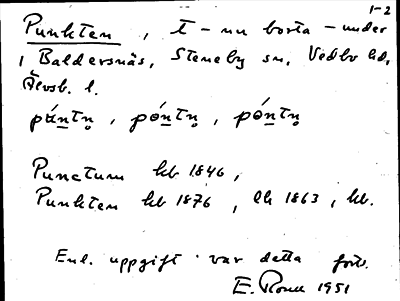 1-2
Punkten, t - nu borta - under
i Baldersnäs, Steneby sn, Vedbo hd,
Älvsb. l.
pántn̥, póntn̥, póntn̥
Punctum hb 1846,
Punkten hb 1876, Ek 1863, kb.
Enl. uppgift var detta
E. 1951